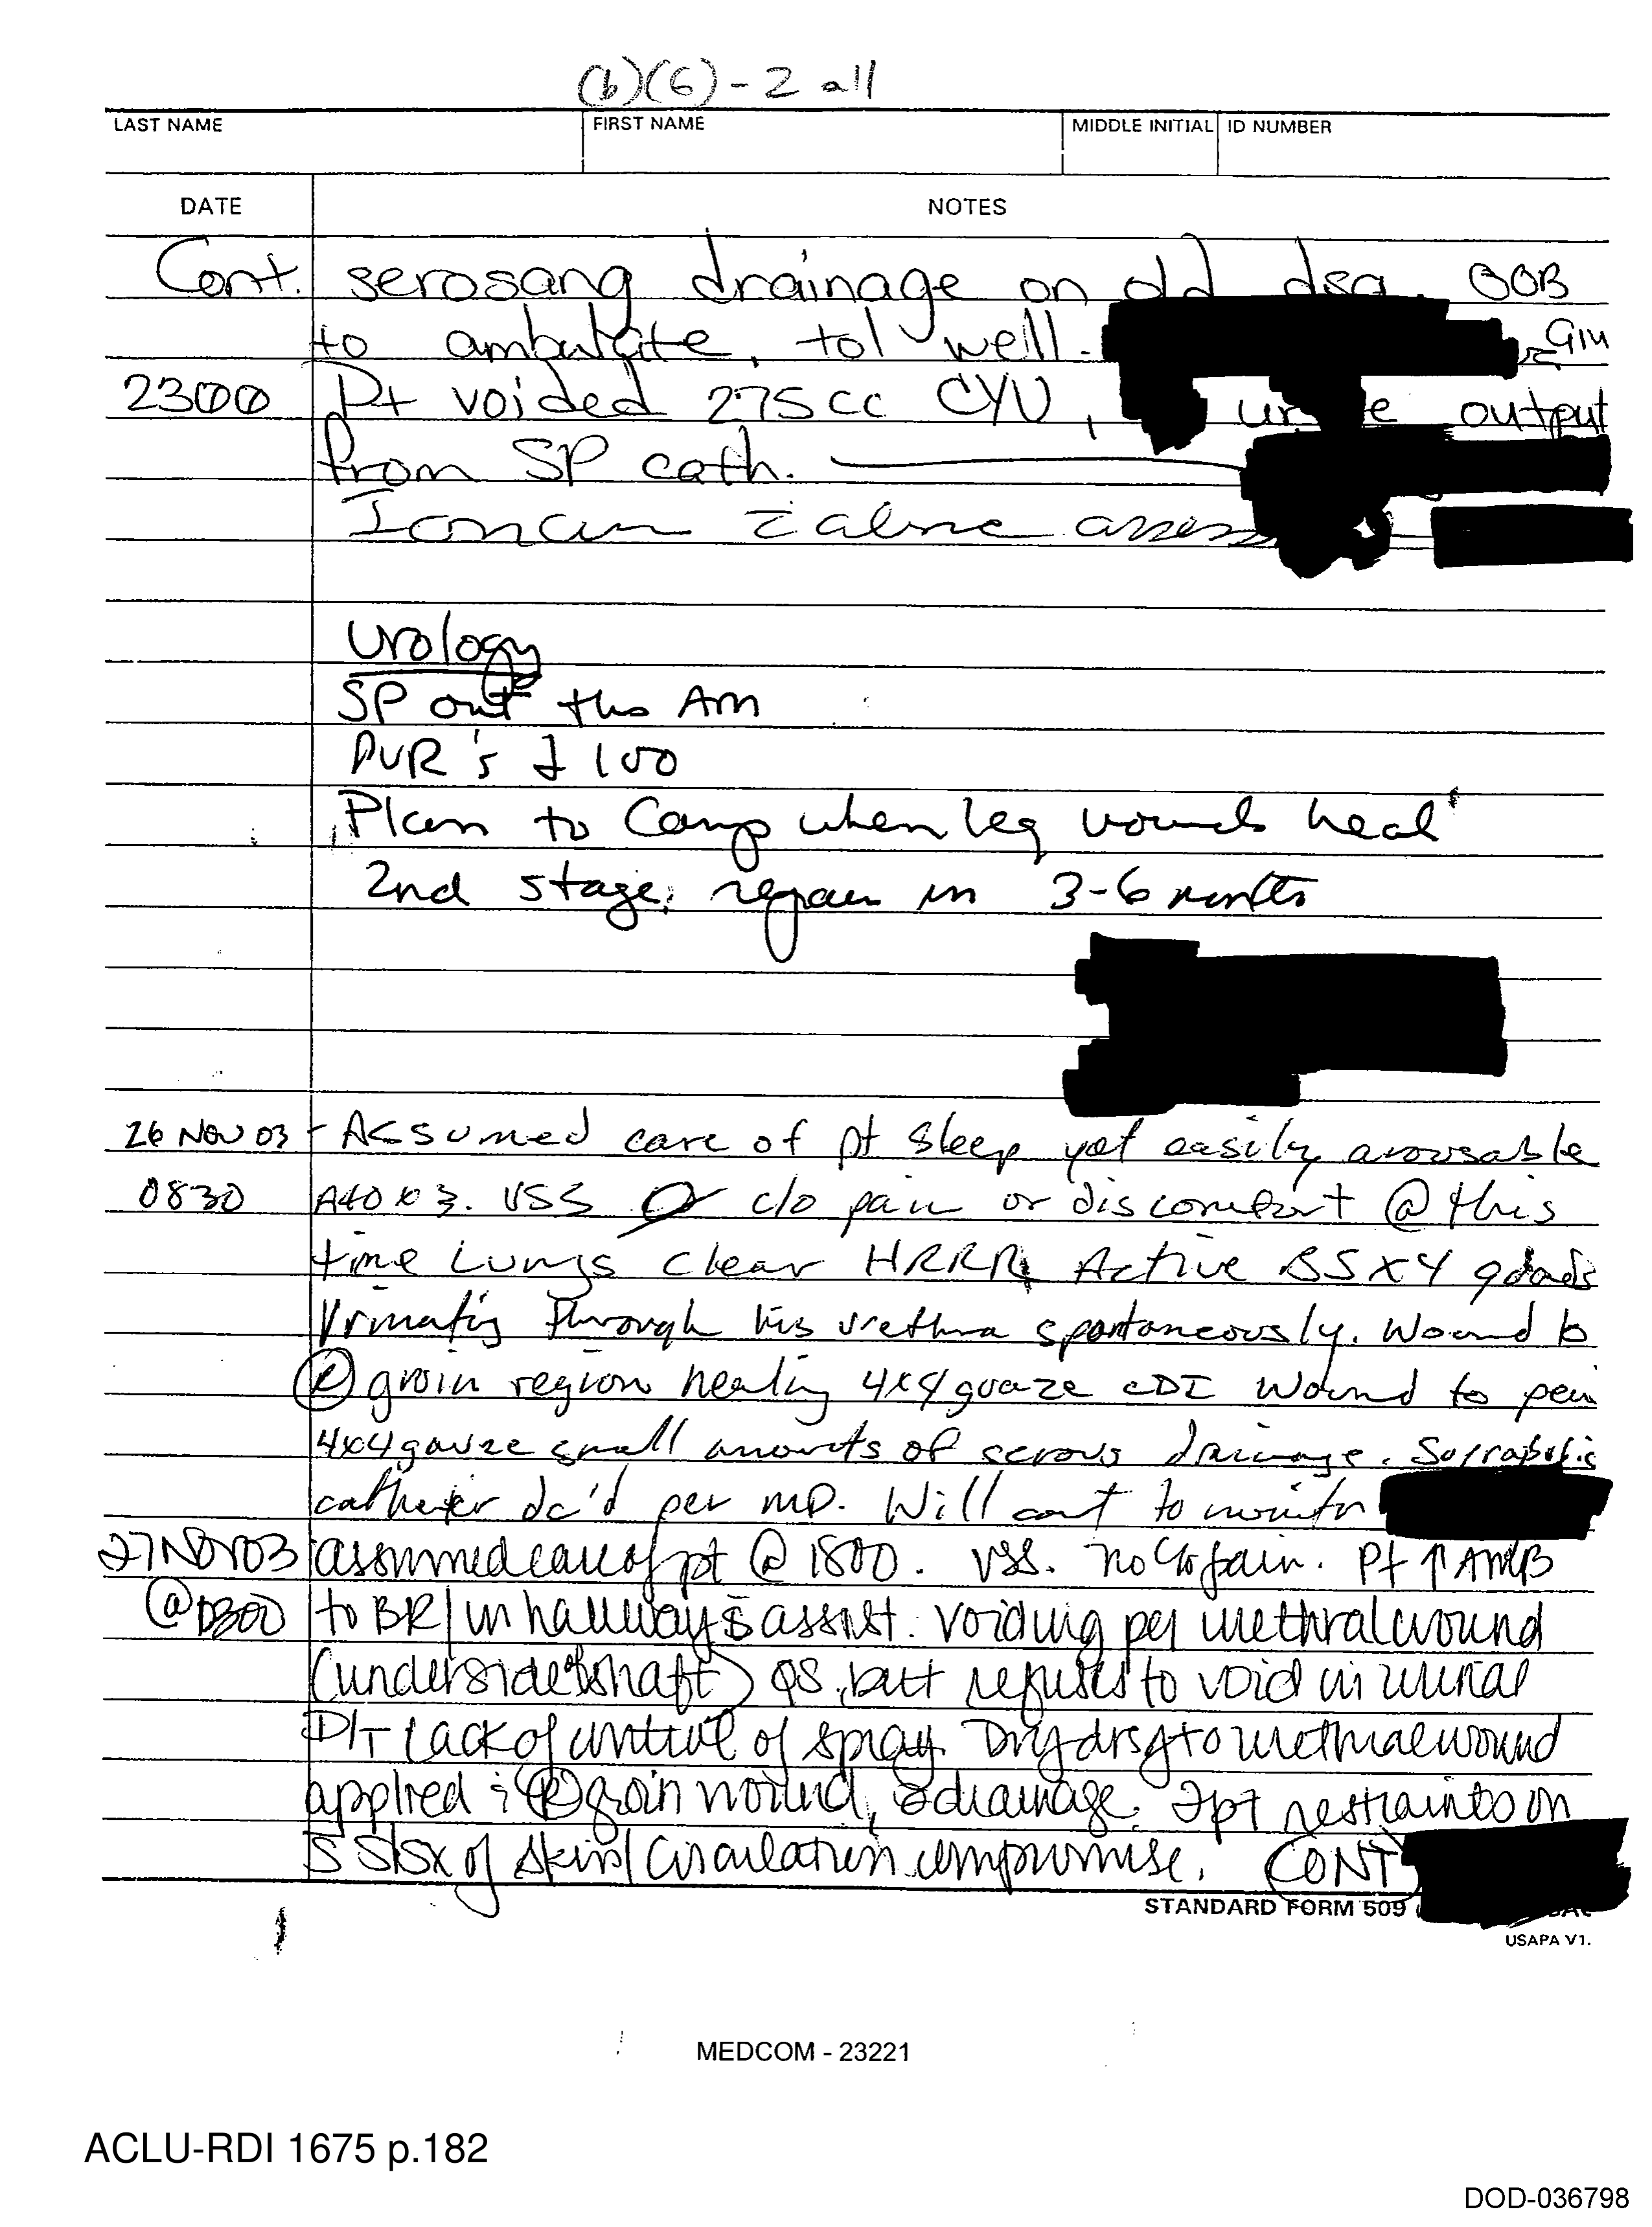 (b)(6)-2 all
LAST NAME FIRST NAME MIDDLE INITIAL ID NUMBER
DATE NOTES
Cont. serosang drainage on old dsg. OOB
to ambulate, tol well.
2300 Pt voided 275cc CYU, urine output
from SP cath.
I concur c̄ above assess
Urology
SP out this AM
PVR's
Plan to Camp when leg wounds heal
2nd stage repair in 3-6 months
26 NOV 03 - Assumed care of pt sleep yet easily arousable
0830 A+O x 3. VSS Ø c/o pain or discomfort @ this
time Lungs clear HRRR Active BS x 4 qdads
Urinatig through his urethra spontaneously. Wound to
Ⓡ groin region healing 4x4 guaze CDI wound to peni
4x4 gauze small amounts of serous drainage. Suprapubic
catheter dc'd per MD. Will cont to monitor
27NOV03 assumed care of pt @ 1800. VSS. no c/o pain. Pt ↑ AMB
@0300 to BR/in hallway s̄ assist. Voiding per urethral wound
(underside of shaft) QS, but refuses to void in urinal
D/T lack of control of spray. Dry drsg to urethral wound
applied ; Ⓡ groin wound, drainage. 2pt restraints on
s̄ S/Sx of skin/circulation compromise. CONT
STANDARD FORM 509
USAPA V1.
MEDCOM - 23221
ACLU-RDI 1675 p.182
DOD-036798